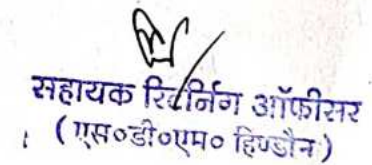 सहायक रिटर्निंग ऑफीसर
(एस०डी०एम० हिण्डौन)